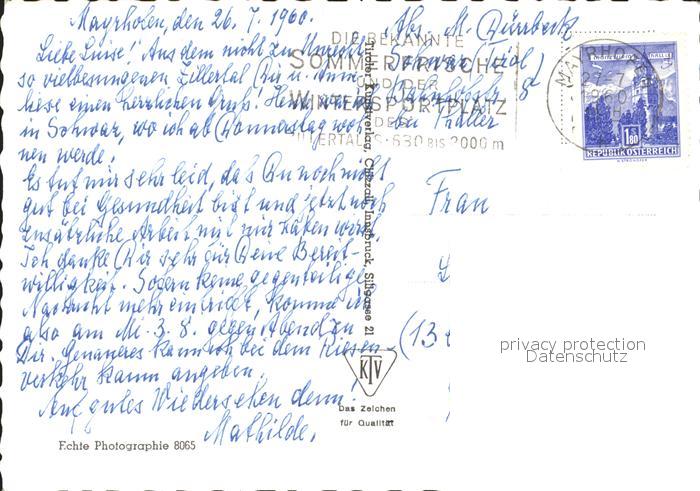 Mayrhofen den 26. 7. 1960.
Liebe Luise! Aus dem nicht zu Unrecht
so vielbesungenen Zillertal Dir u. Anne-
liese einen herzlichen Gruß!
in Schwaz, wo ich ab Donnerstag woh-
nen werde.
Es tut mir sehr leid, daß Du noch nicht
gut bei Gesundheit bist und jetzt noch
zusätzliche Arbeit mit mir haben wirst.
Ich danke Dir sehr für Deine Bereit-
willigkeit. Sofern keine gegenteilige
Nachricht mehr eintrifft, komme ich
also am Mi. 3. 8. gegen Abend zu
Dir. Genaueres kann ich bei dem Riesen-
verkehr kaum angeben.
Auf gutes Wiedersehen denn!
Mathilde.
Echte Photographie 8065
Abs. M.
Schwaz (Tirol)
bei
DIE BEKANNTE
SOMMERFRISCHE
UND DER
WINTERSPORTPLATZ
DES
ZILLERTALES · 630 BIS 2000 m
MAYRHOFEN
Tiroler Kunstverlag, Chizzali, Innsbruck, Sillgasse 21
KTV
Das Zeichen
für Qualität
1.80
REPUBLIK ÖSTERREICH
Frau
(13
privacy protection
Datenschutz